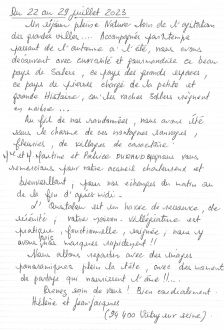 Du 22 au 29 juillet 2023
Un séjour pleine Nature loin de l'agitation
des grandes villes.... Accompagnés par le temps
passant de l'automne à l'été, nous avons
découvert avec curiosité et gourmandise ce beau
pays de Salers, ce pays des grands espaces,
ce pays de pierres chargé de la petite et
grande Histoire, car les vaches Salers règnent
en maître...
Au fil de nos randonnées, nous avons été
sous le charme de ces montagnes sauvages,
fleuries, de villages de caractère.
Mme et Mr Martine et Patrice vous
remercions pour votre accueil chaleureux et
bienveillant, pour nos échanges du matin ou
de la fin d'après-midi.
est un havre de ressource, de
sérénité; votre maison. Villégiature est
pratique, fonctionnelle, soignée, nous y
avons pris nos marques rapidement!!
Nous allons repartir avec des images
panoramiques plein la tête, avec des moments
de partage qui nourrissent l'âme!!...
Prenez soin de vous! Bien cordialement.
Hélène et Jean-Jacques
(94 400 Vitry sur Seine)